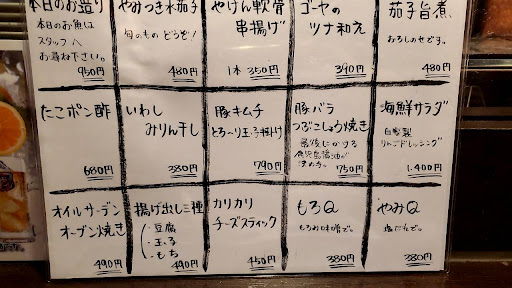 本日のお造り
本日のお魚は
スタッフへ
お尋ね下さい。
950円
やみつき水茄子
旬のもの どうぞ!
480円
やげん軟骨
串揚げ
1本 350円
ゴーヤの
ツナ和え
390円
茄子旨煮
おろしのせです。
480円
たこポン酢
680円
いわし
みりん干し
380円
豚キムチ
とろ〜り玉子掛け
790円
豚バラ
つぶこしょう焼き
最後にかける
鹿児島醤油が
決め手。
750円
海鮮サラダ
自家製
りんごドレッシング
1,400円
オイルサーデン
オーブン焼き
490円
揚げ出し三種
・豆腐
・玉子
・もち
490円
カリカリ
チーズスティック
450円
もろQ
もろみ味噌で。
380円
やみQ
塩だれで。
380円